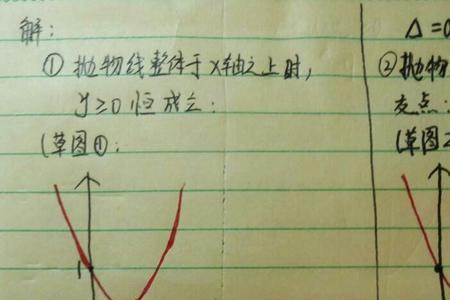 解：
① 抛物线整体于x轴之上时，
y≥0 恒成立：
(草图①：
1
Δ=0
②抛物
交点：
(草图2